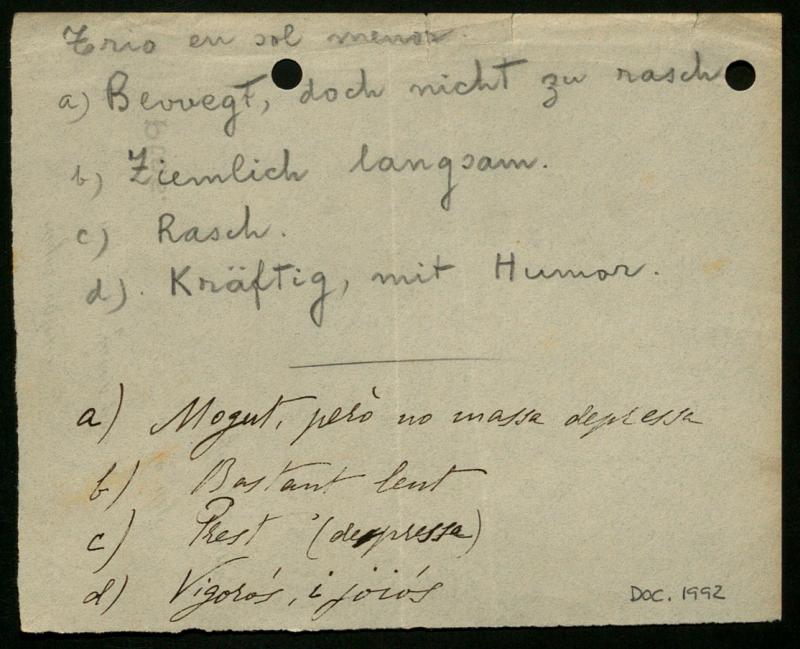 Trio en sol menor.
a) Bewegt, doch nicht zu rasch
b) Ziemlich langsam.
c) Rasch.
d). Kräftig, mit Humor.
a) Mogut, però no massa depressa
b) Bastant lent
c) Prest (depressa)
d) Vigorós, i joiós
DOC. 1992